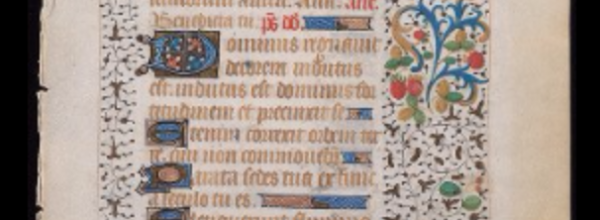 Benedicta tu. ps̄ dd̄.
Dominus regnavit
decorem indutus
est. indutus est dominus for
titudinem et precinxit se
Etenim correxit orbem ter
re. qui non commovebit̄
Parata sedes tua ex tunc
a seculo tu es.